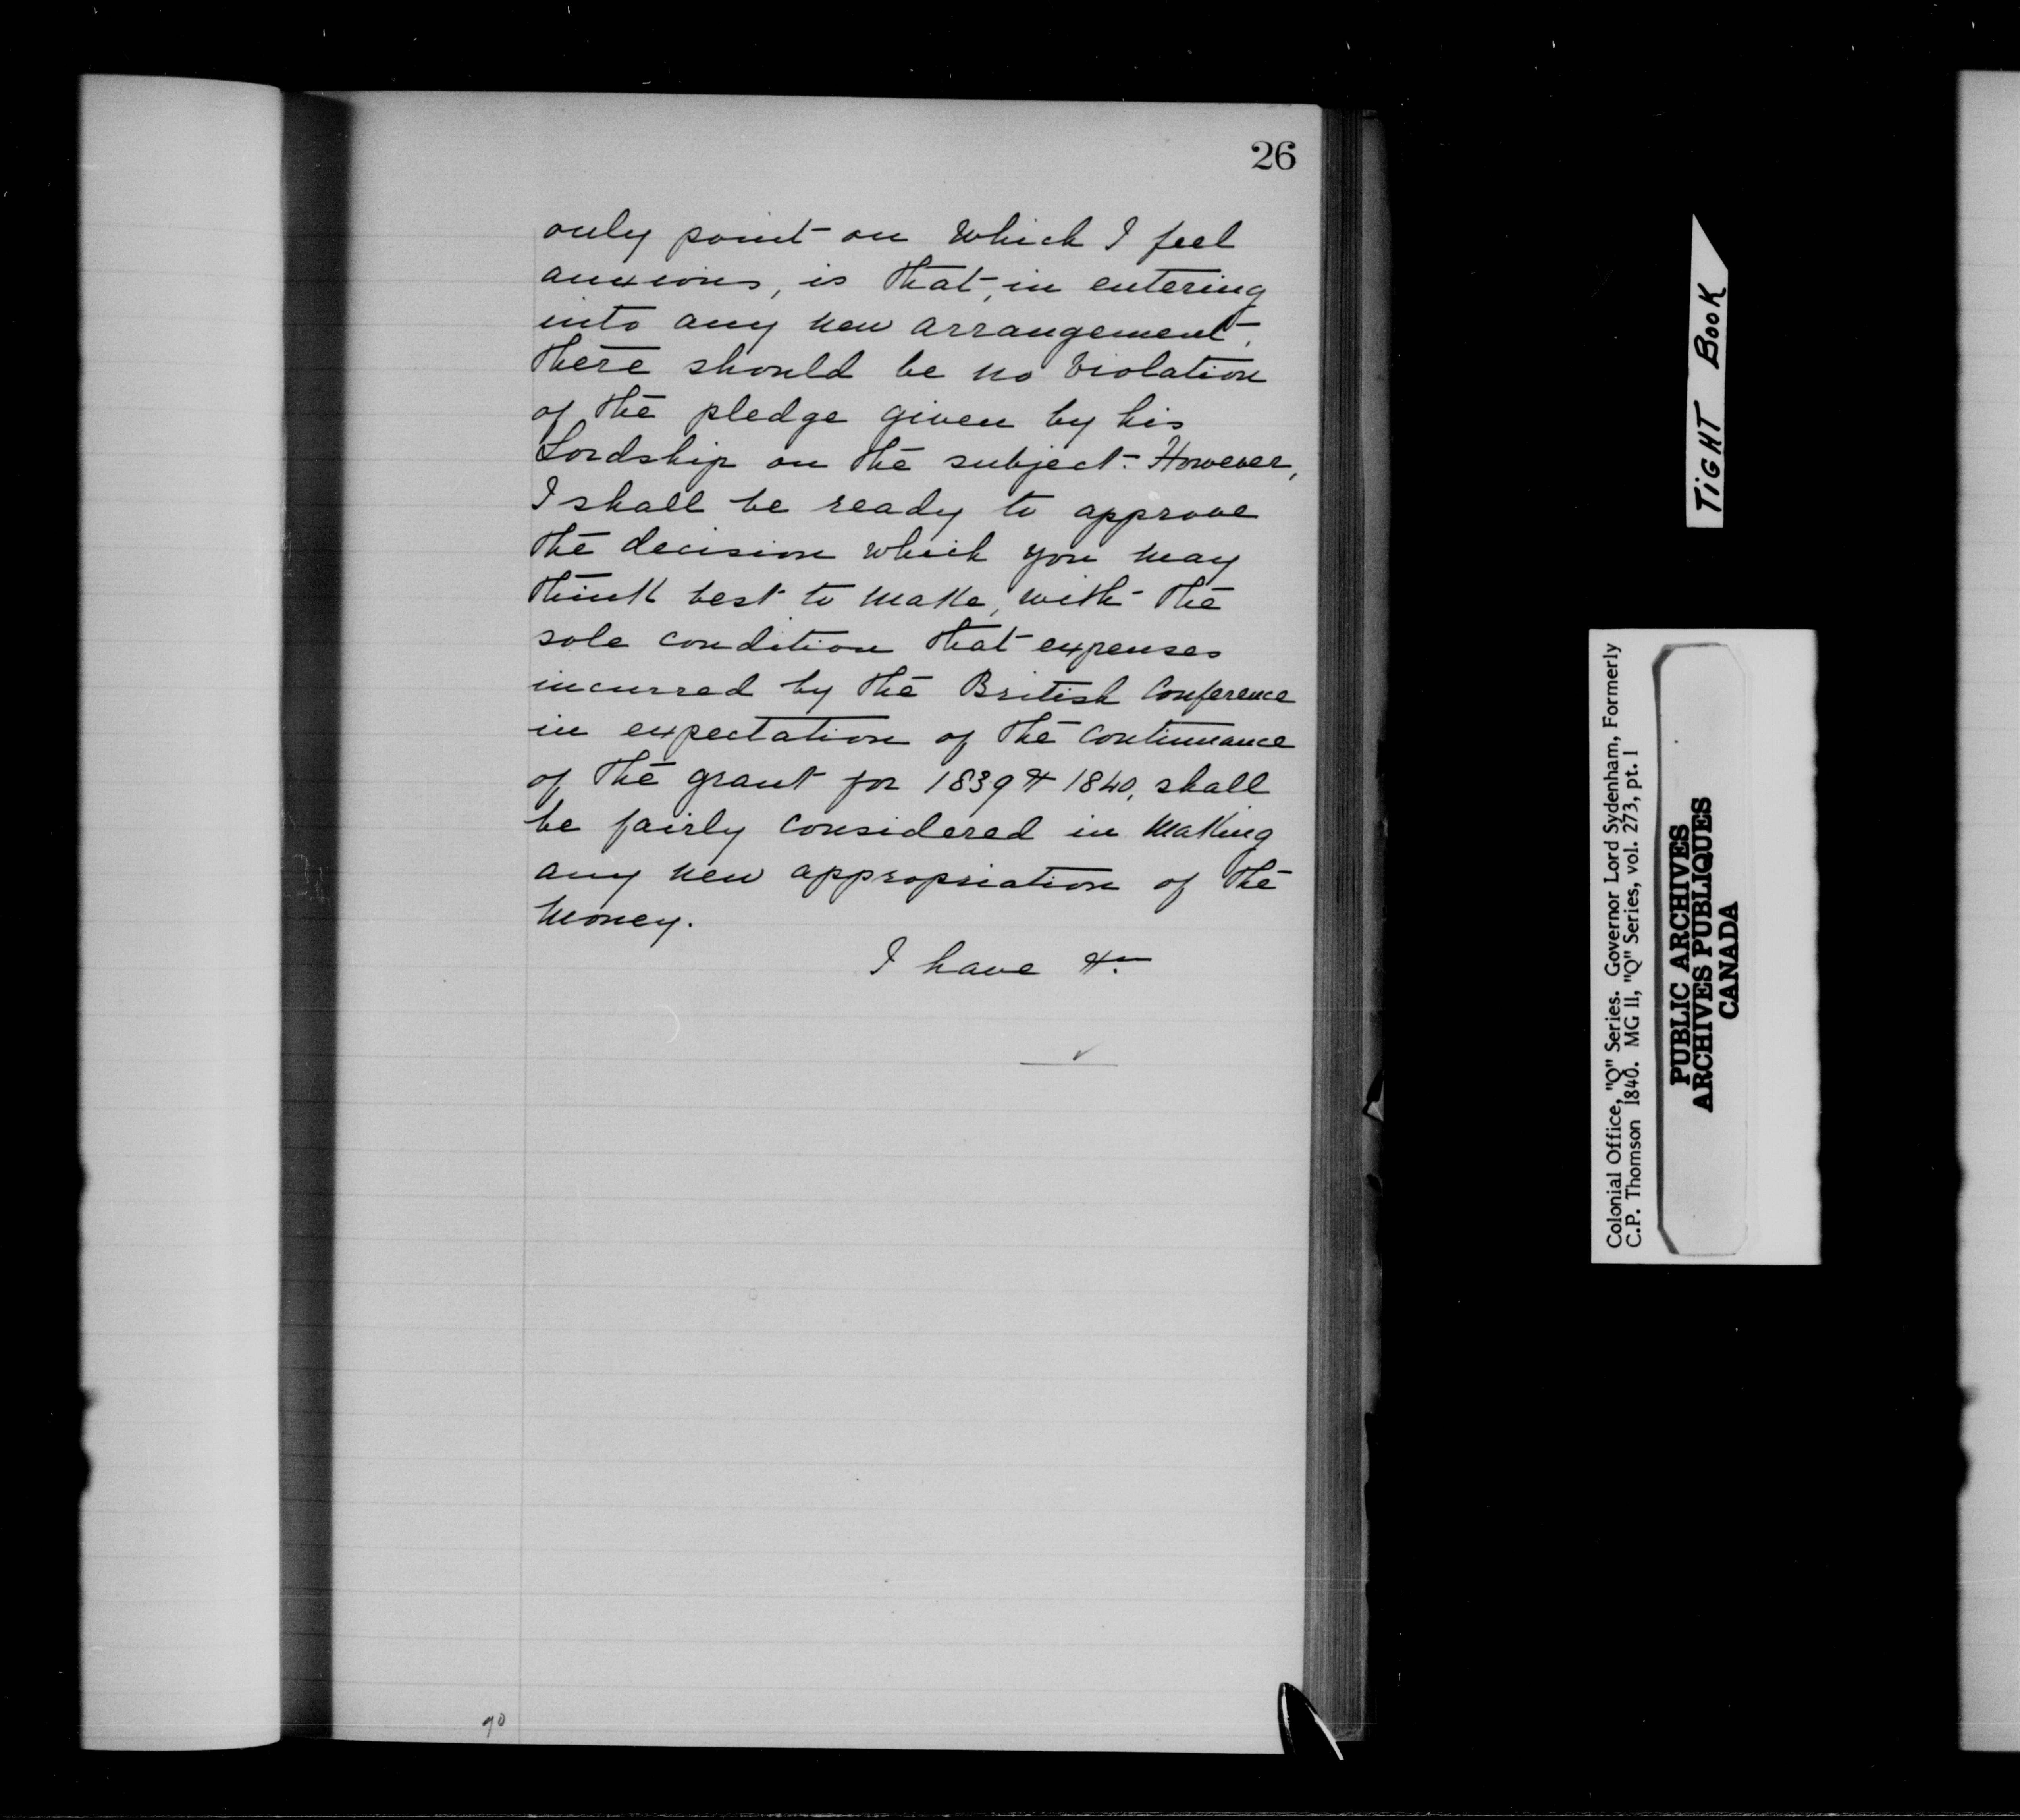 26
only point on which I feel
anxious, is that, in entering
into any new arrangement,
there should be no violation
of the pledge given by his
Lordship on the subject. However,
I shall be ready to approve
the decision which you may
think best to make, with the
sole condition that expenses
incurred by the British Conference
in expectation of the continuance
of the grant for 1839 & 1840, shall
be fairly considered in making
any new appropriation of the
money.
I have &c
90
TIGHT BOOK
Colonial Office, "Q" Series. Governor Lord Sydenham, Formerly
C.P. Thomson 1840. MG 11, "Q" Series, vol. 273, pt. 1
PUBLIC ARCHIVES
ARCHIVES PUBLIQUES
CANADA